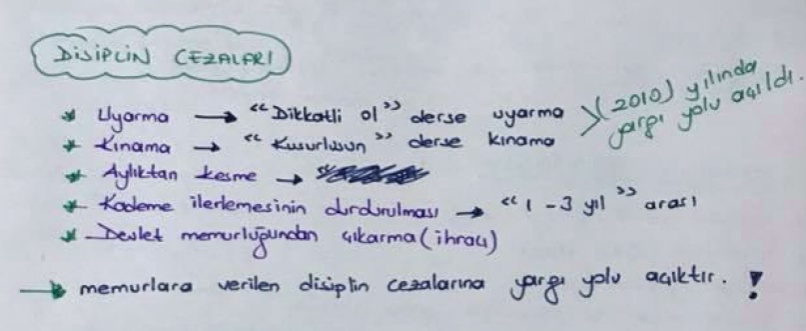 DİSİPLİN CEZALARI
* Uyarma → "Dikkatli ol" derse uyarma
* Kınama → "Kusurlusun" derse kınama
> (2010) yılında yargı yolu açıldı.
* Aylıktan kesme →
* Kademe ilerlemesinin durdurulması → "1 - 3 yıl" arası
* Devlet memurluğundan çıkarma (ihraç)
→ memurlara verilen disiplin cezalarına yargı yolu açıktır. !